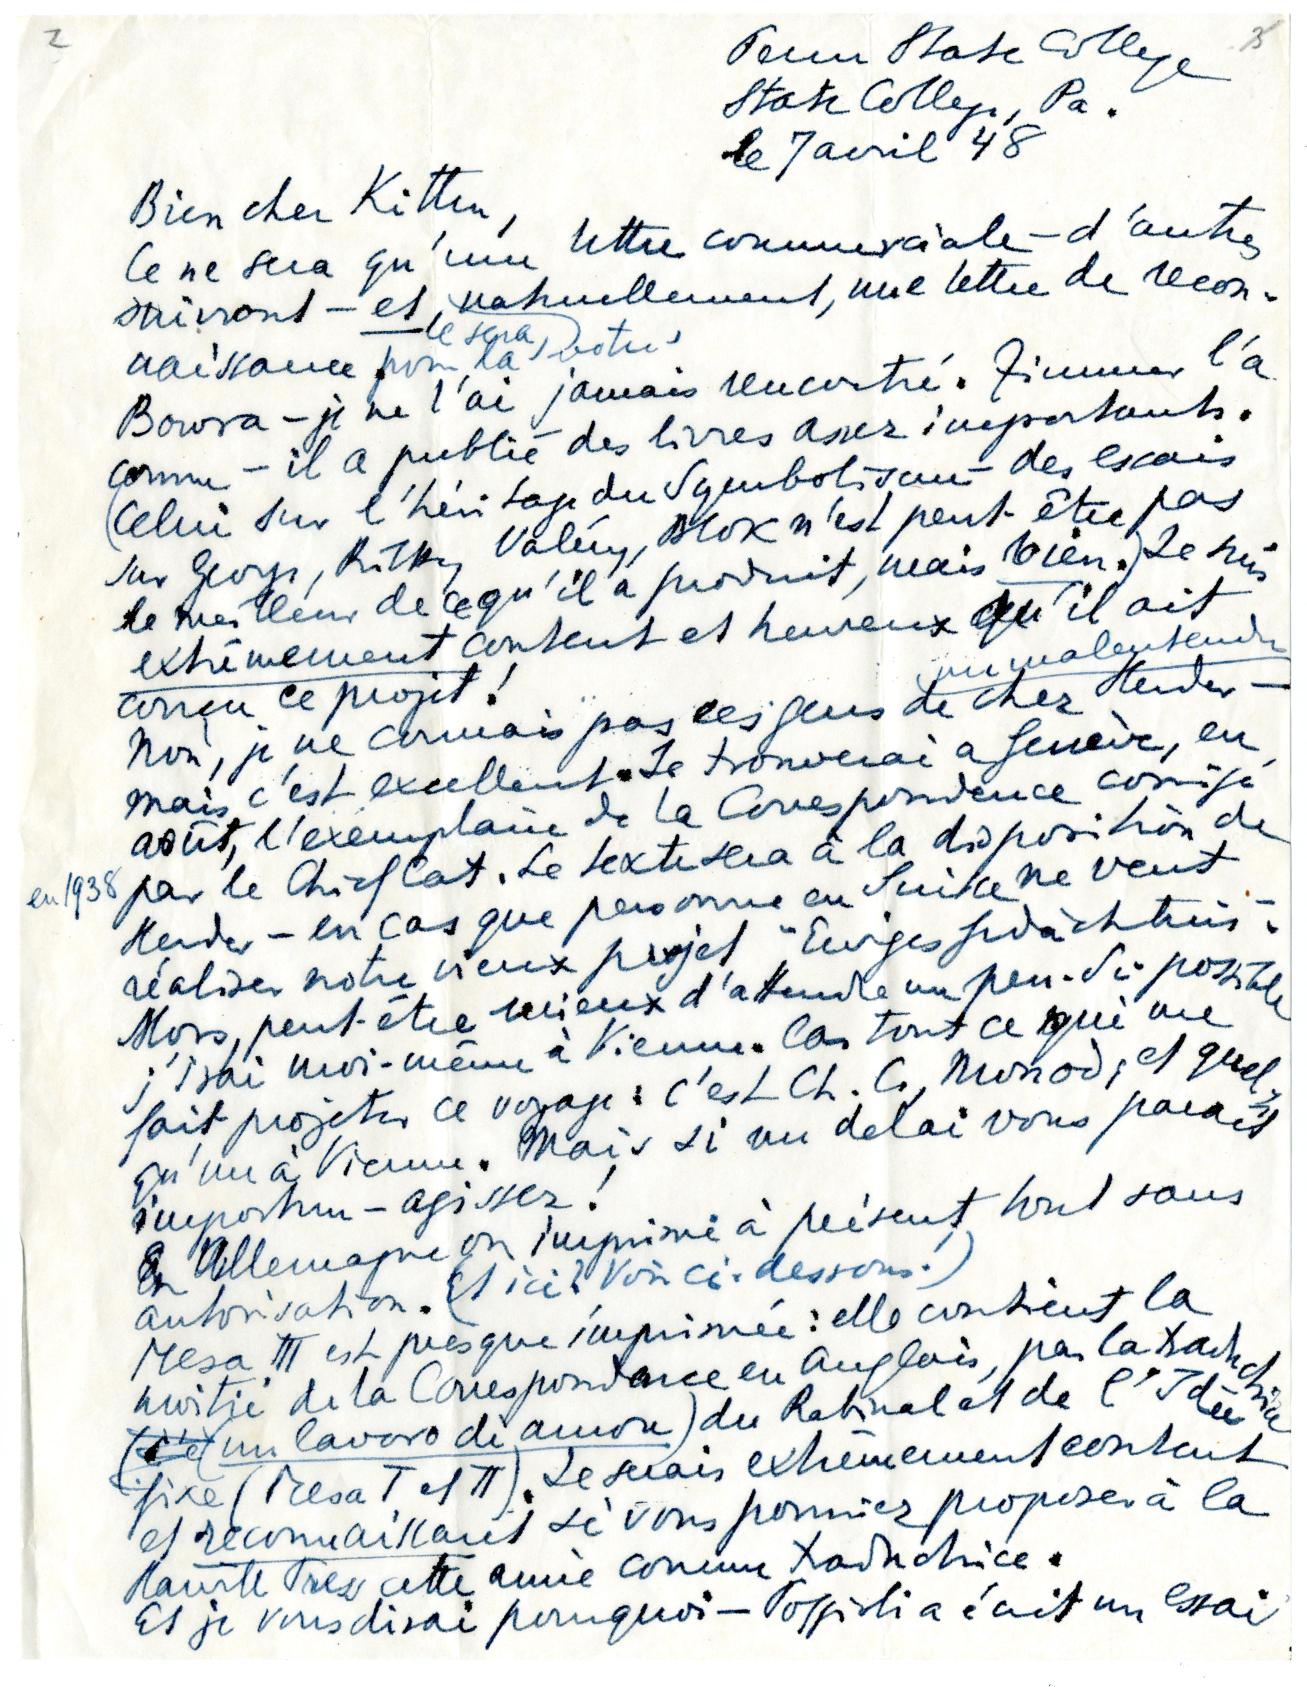 2
3
Penn State College
State College, Pa.
le 7 avril 48
Bien cher Kitten,
Ce ne sera qu'une lettre commerciale – d'autres
suivront – et, naturellement, une lettre de recon-
naissance pour la vôtre
le sera
Bowra – je ne l'ai jamais rencontré. Zimmer l'a
connu – il a publié des livres assez importants.
(Celui sur l'héritage du Symbolisme – des essais
sur George, Rilke, Valéry, Blok n'est peut-être pas
le meilleur de ce qu'il a produit, mais bien.) Je suis
extrêmement content et heureux qu'il ait
conçu ce projet!
un malentendu
Non, je ne connais pas ces gens de chez Herder –
mais c'est excellent. Je trouverai à Genève, en
août, l'exemplaire de la Correspondence corrigé
en 1938
par le Chief Cat. Le texte sera à la disposition de
Herder – en cas que personne en Suisse ne veut
réaliser notre vieux projet "Ewiges Gedächtnis".
Alors, peut-être mieux d'attendre un peu. Si possible
j'irai moi-même à Vienne. Car tout ce qui me
fait projeter ce voyage: c'est Ch. C., Monod, et quel-
qu'un à Vienne. Mais si un délai vous paraît
importun – agissez!
En Allemagne on imprime à présent tout sans
autorisation. (Et ici? Voir ci-dessous.)
Mesa III est presque imprimée: elle contient la
moitié de la Correspondence en Anglais, par la traductrice
(un lavoro di amore) du Rabinal et de l'Idée
fixe (Mesa I et II). Je serais extrêmement content
et reconnaissant si vous pourriez proposer à la
cette année comme traductrice.
Et je vous dirai pourquoi – a écrit un essai